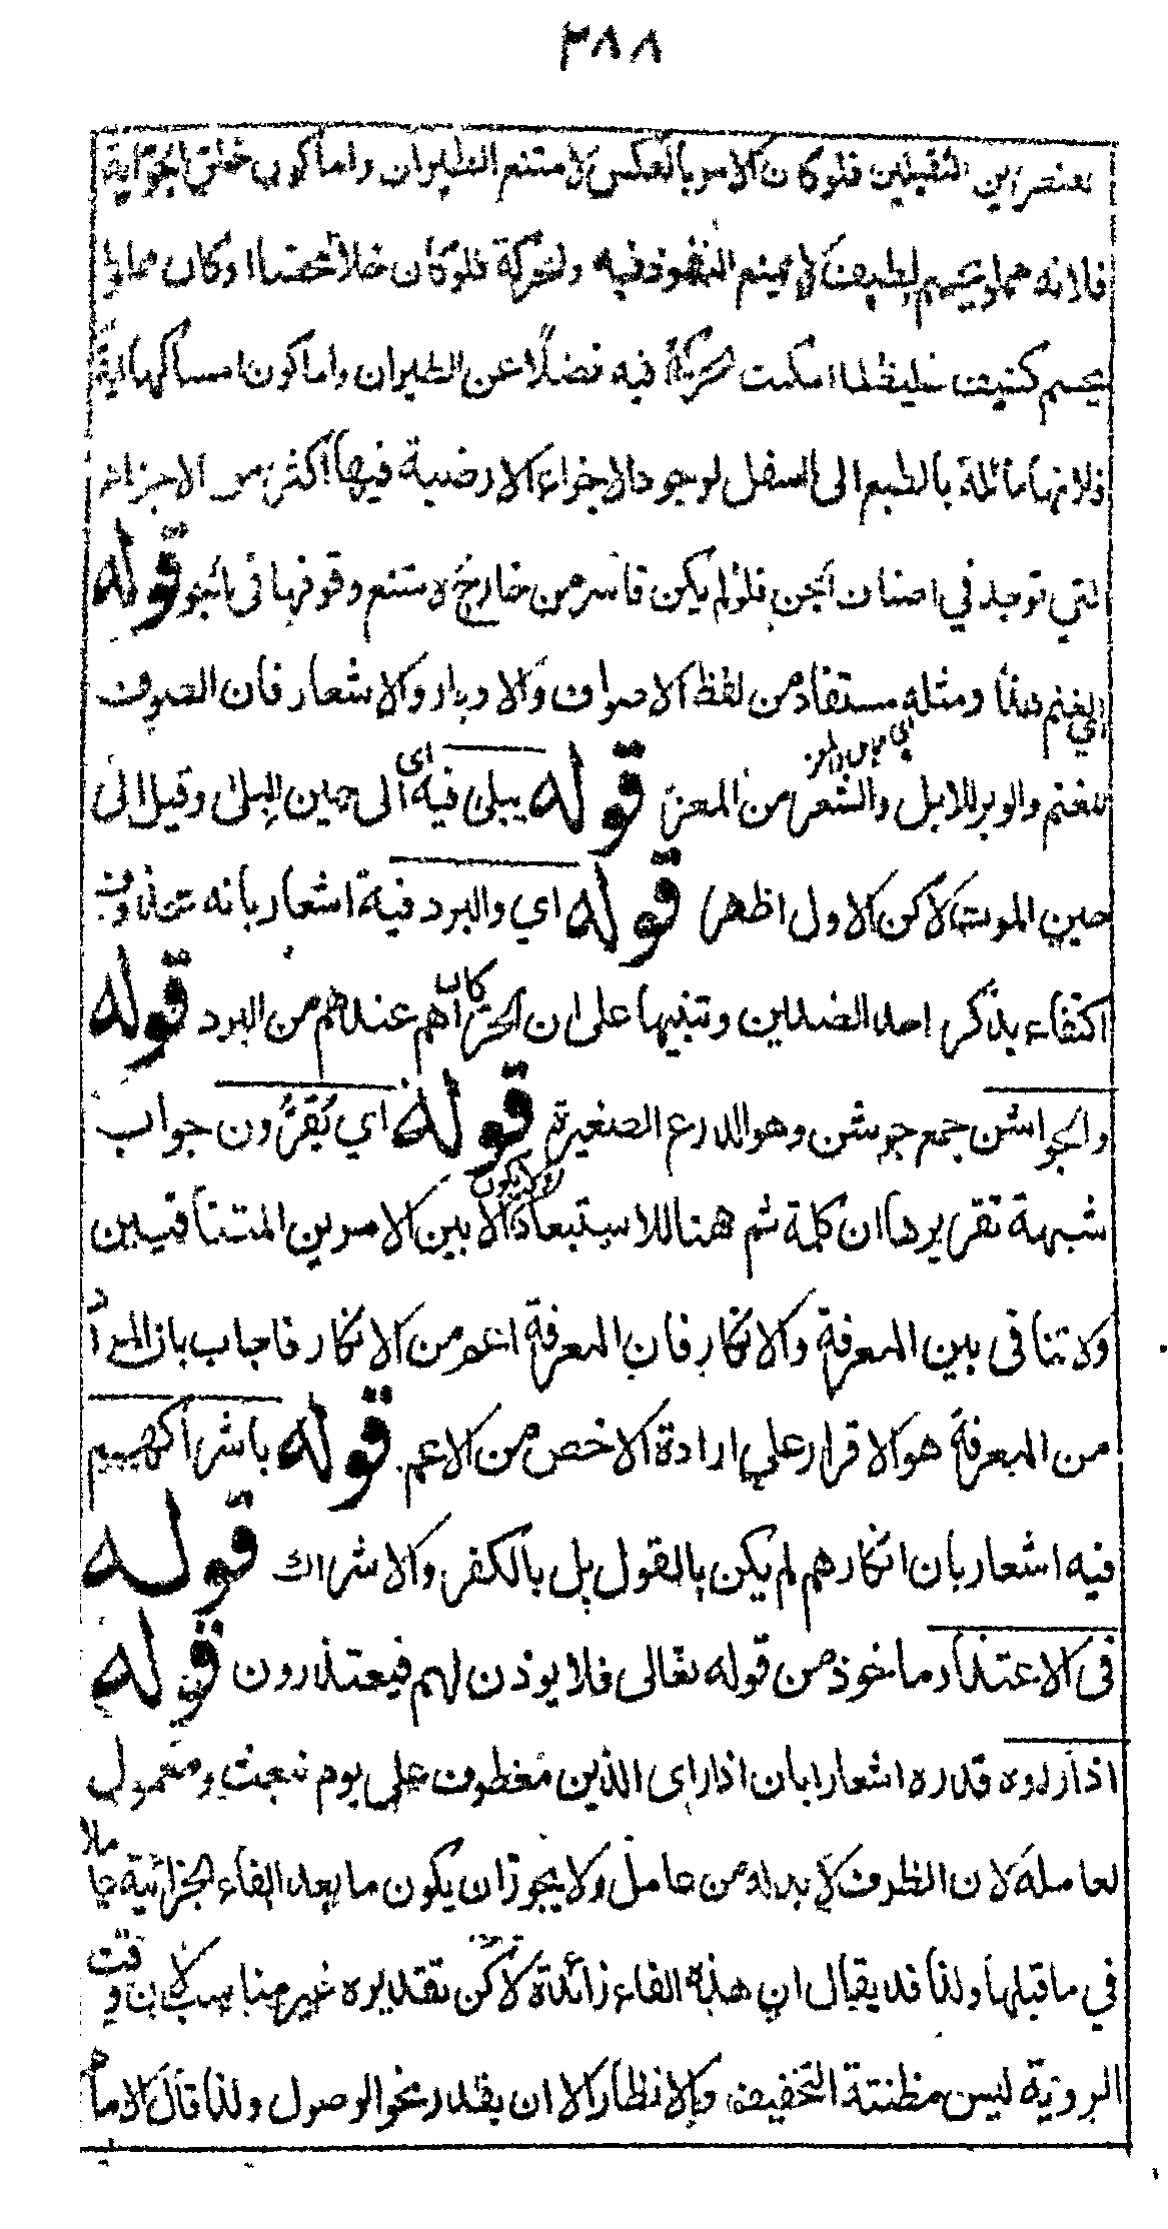 ٣٨٨
لعنصرين الثقيلين فلو كان الامر بالعكس لامتنع الطيران واما كون خلق الجو اية
فلانه مملو بجسم لطيف لا يمنع النفوذ فيه والحركة فلو كان خلاء محضا او كان مملوا
بجسم كثيف غليظ لما امكنت الحركة فيه فضلا عن الطيران واما كون امساكها اية
فلانها مائلة بالطبع الى السفل لوجود الاجزاء الارضية فيها اكثر من الاجزاء
التي توجد في اصناف الجن فلو لم يكن قاسر من خارج لامتنع وقوفها في الجو قوله
اي الغنم هذا ومثله مستفاد من لفظ الاصواف والاوبار والاشعار فان الصوف
للغنم والوبر للابل والشعر من المعز قوله يبلى فيه اي الى حين البلى وقيل الى
حين الموت لكن الاول اظهر قوله اي والبرد فية اشعار بانه محذوف
اكتفاء بذكر احد الضدين وتنبيها على ان الحر كان اهم عندهم من البرد قوله
والجواشن جمع جوشن وهو الدرع الصغيرة قوله اي يُقرُّون جواب
شبهة تقريرها ان كلمة ثم هنا للاستبعاد ولا يكون الا بين الامرين المتنافيين
ولا تنافى بين المعرفة والانكار فان المعرفة اعم من الانكار فاجاب بان المراد
من المعرفة هو الاقرار علي ارادة الاخص من الاعم قوله باشراكهم
فيه اشعار بان انكارهم لم يكن بالقول بل بالكفر والاشراك قوله
في الاعتذار ماخوذ من قوله تعالى فلا يوذن لهم فيعتذرون قوله
اذا راوه قدره اشعارا بان اذا راى الذين معطوف على يوم نبعث ومعمول
لعامله لان الظرف لا بد له من عامل ولا يجوز ان يكون ما بعد الفاء الجزائية عاملا
في ما قبلها ولذا قد يقال ان هذه الفاء زائدة لكن تقديره غير مناسب لان وقت
الروية ليس مظنتة التخفيف والانظار الا ان يقدر نحو الوصول ولذا قال الامام